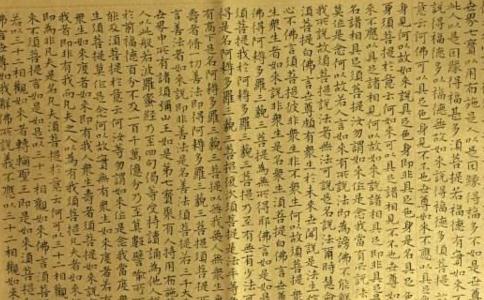 世界七寶以用布施是人以是因緣得福多不如是世尊
此人以是因緣得福甚多須菩提若福德有實如來不
說得福德多以福德無故如來說得福德多須菩提於
意云何佛可以具足色身見不不也世尊如來不應以具足色
身見何以故如來說具足色身即非具足色身是名具足色身
須菩提於意云何如來可以具足諸相見不不也世尊如
來不應以具足諸相見何以故如來說諸相具足即非具足是
名諸相具足須菩提汝勿謂如來作是念我當有所說法
莫作是念何以故若人言如來有所說法即為謗佛不能解
我所說故須菩提說法者無法可說是名說法爾時慧命
須菩提白佛言世尊頗有眾生於未來世聞說是法生信
心不佛言須菩提彼非眾生非不眾生何以故須菩提眾
生眾生者如來說非眾生是名眾生須菩提白佛言世尊
佛得阿耨多羅三藐三菩提為無所得耶佛言如是如是
須菩提我於阿耨多羅三藐三菩提乃至無有少法可
得是名阿耨多羅三藐三菩提復次須菩提是法平等無
有高下是名阿耨多羅三藐三菩提以無我無人無眾生無壽
者修一切善法即得阿耨多羅三藐三菩提須菩提所
言善法者如來說即非善法是名善法須菩提若三千大千
世界中所有諸須彌山王如是等七寶聚有人持用布施若人
以此般若波羅蜜經乃至四句偈等受持讀誦為他人說
於前福德百分不及一百千萬億分乃至算數譬喻所不
能及須菩提於意云何汝等勿謂如來作是念我當度眾
生須菩提莫作是念何以故實無有眾生如來度者若有
眾生如來度者如來即有我人眾生壽者須菩提如來說有我
者即非有我而凡夫之人以為有我須菩提凡夫者如
來說即非凡夫是名凡夫須菩提於意云何可以三十二相觀
如來不須菩提言如是如是以三十二相觀如來佛言須菩提
若以三十二相觀如來者轉輪聖王即是如來須菩提白
佛言世尊如我解佛所說義不應以三十二相觀如來